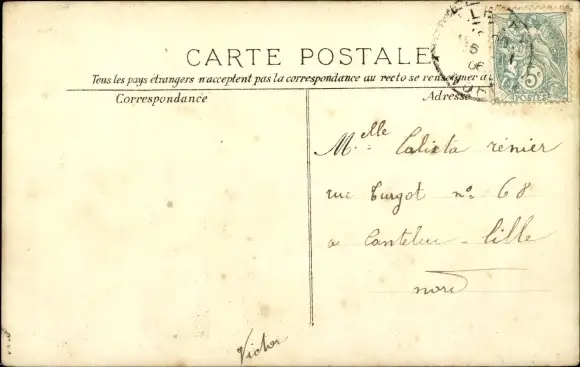 CARTE POSTALE
Tous les pays étrangers n'acceptent pas la correspondance au recto se renseigner à
Correspondance
Adresse
LILLE
NORD
5c
POSTES
Melle Calixta rénier
rue Turgot no 68
a Canteleu - Lille
nord
Victor